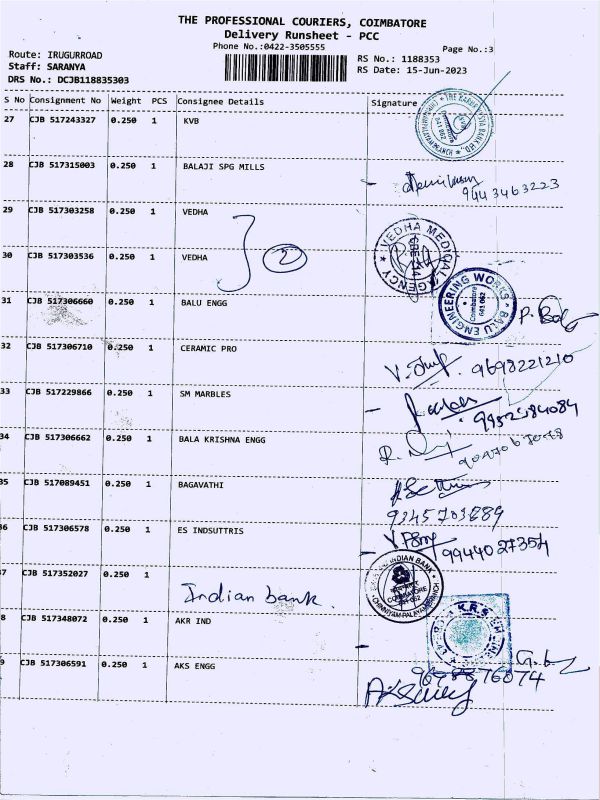 THE PROFESSIONAL COURIERS, COIMBATORE
Delivery Runsheet - PCC
Phone No.:0422-3505555
Page No.:3
Route: IRUGURROAD
Staff: SARANYA
DRS No.: DCJB118835303
RS No.: 1188353
RS Date: 15-Jun-2023
S No Consignment No Weight PCS Consignee Details Signature
27 CJB 517243327 0.250 1 KVB
28 CJB 517315003 0.250 1 BALAJI SPG MILLS
9943463223
29 CJB 517303258 0.250 1 VEDHA
2
VEDHA MEDICAL AGENCY
30 CJB 517303536 0.250 1 VEDHA
31 CJB 517306660 0.250 1 BALU ENGG
BALU ENGINEERING WORKS
Coimbatore
641 062
32 CJB 517306710 0.250 1 CERAMIC PRO
9698221210
33 CJB 517229866 0.250 1 SM MARBLES
34 CJB 517306662 0.250 1 BALA KRISHNA ENGG
35 CJB 517089451 0.250 1 BAGAVATHI
9345703889
36 CJB 517306578 0.250 1 ES INDSUTTRIS
9944027354
7 CJB 517352027 0.250 1 Indian bank.
INDIAN BANK
8 CJB 517348072 0.250 1 AKR IND
9 CJB 517306591 0.250 1 AKS ENGG
9698876074